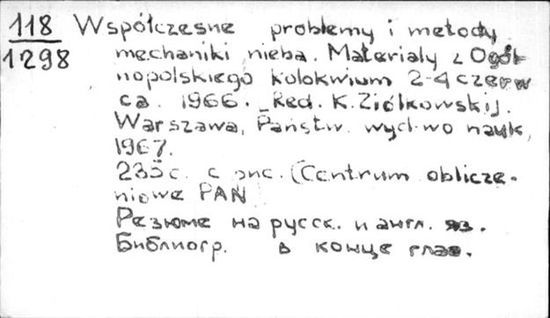 118 Współczesne problemy i metody
1298 mechaniki nieba. Materiały z Ogól-
nopolskiego kolokwium 2-4 czerw
ca. 1966. Red. K. Ziółkowski.
Warszawa, Państw. wyd-wo nauk,
1967.
235 с. с рис. (Centrum oblicze-
niowe PAN
Резюме на русск. и англ. яз.
Библиогр. в конце глав.